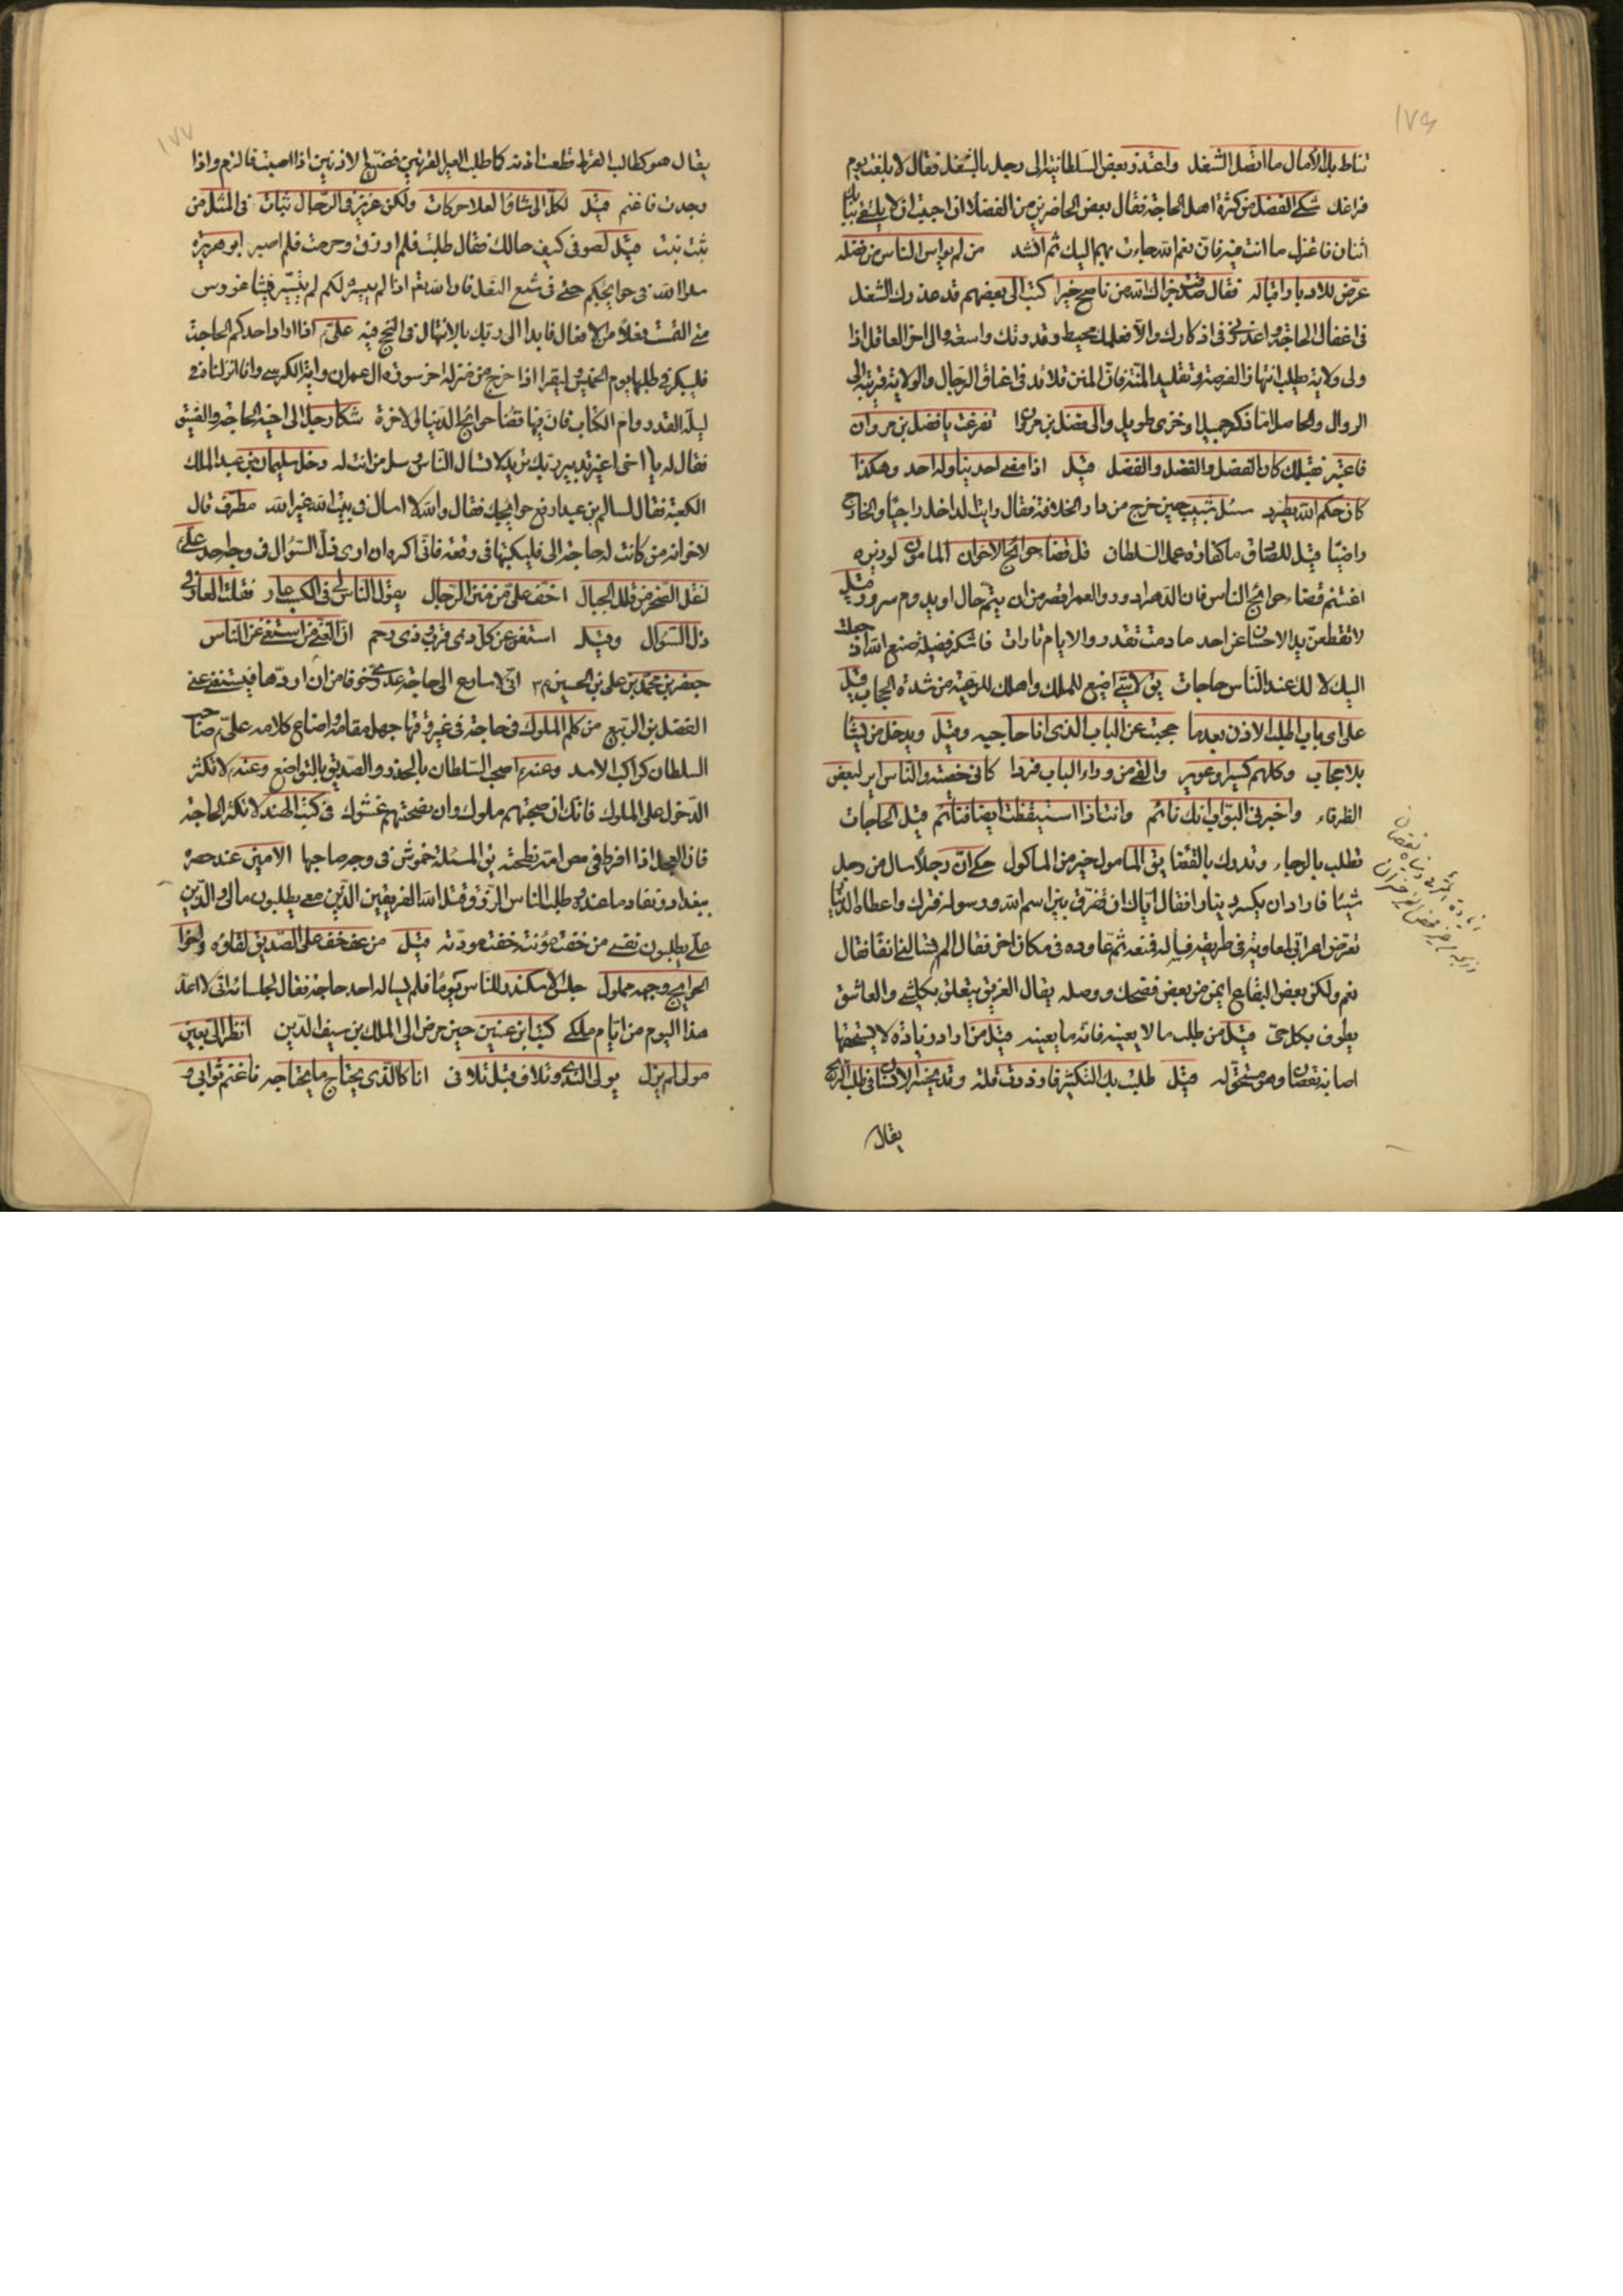 ١٧٦
تناط بك الآمال ما اتصل الشغل واعتذر بعض السلطانية الى رجل بالشغل فقال لا بلغت يوم
فراغك شكى الفضل من كثرة اهل الحاجة فقال بعض الحاضرين من الفضلا ان احببت ان لا يلتقى ببابك
اثنان فاعتزل ما انت فيه فان نعم الله جاءت بهم اليك ثم انشد من لم يواس الناس من فضله
عرض للادبار اقباله فقال صدقت جزاك الله من ناصح خيرا كتب الى بعضهم قد عذرك الشغل
فى اغفال الحاجة واعذرنى فى اذكارك والا فعلمك محيط وقدرتك واسعة والى اخر العاقل اذا
ولى ولاية يطلب انتهاز الفرصة وتقليد المنة فان المنن قلائد فى اعناق الرجال والولاية قريبة الى
الزوال والحاصل اما ذكر جميل او خزى طويل والى فضل بن مروان تفرعنت يا فضل بن مروان
فاعتبر فقبلك كان الفضل والفضل والفضل قيل اذا مضى احد ينا وله احد وهكذا
كان حكم الله يطرد سئل شبيب حين خرج من دار الخلافة فقال رايت الداخل راجيا والخارج
راضيا قيل للصادق ما كفارة عمل السلطان قال قضاء حوائج الاخوان المامون لوزيره
اغتنم قضاء حوائج الناس فان الدهر ادور والعمر اقصر من ان يتم حال او يدوم سرور قيل
لا تقطعن يد الاحسان عن احد ما دمت تقدر والايام تارات فاشكر فضيلة صنع الله اذ جعلت
اليك لا لك عند الناس حاجات يق لا شئ اضيع للملك واهلك للرعية من شدة الحجاب قيل
على اى باب اطلب الاذن بعد ما حجبت عن الباب الذى انا حاجبه وقيل ويدخل من يشا
بلا حجاب وكلهم كسير وعوير والقى من وراء الباب فردا كانى خصية والناس اير لبعض
الظرفاء واخبرنى البواب انك نائم وانت اذا استيقظت ايضا فنائم قيل الحاجات
تطلب بالرجاء وتدرك بالقضا يق المامول خير من الماكول حكى ان رجلا سال من رجل
شيئا فاراد ان يكسر دينارا فقال اياك ان تفرق بين اسم الله ورسوله فترك واعطاه الدينار
تعرض اعرابى لمعاوية فى طريقه فساله فمنعه ثم عاوده فى مكان اخر فقال الم تسالنى انفا فقال
نعم ولكن بعض البقاع ايمن من بعض فضحك ووصله يقال الغريق يتعلق بكل شئ والعاشق
يطوف بكل حى قيل من طلب ما لا يعنيه فاته ما يعنيه قيل من اراد زيادة لا يستحقها
اصابه نقصان وهو مستحق له قيل طلبت بك التكثير فازددت قلة وقد يخسر الانسان فى طلب الربح
يقال
١٧٧
يقال هو كطالب القرط قطعت اذنه كما طلب العير القرنين فضيع الاذنين اذا اصبت فالزم واذا
وجدت فاغنم قيل لكل الى شاو العلا حركات ولكن عزيز فى الرجال ثبات فى المثل من
ثبت نبت قيل لصوفى كيف حالك فقال طلبت فلم ارزق وحرمت فلم اصبر ابو هريرة
سلوا الله فى حوايجكم حتى فى شسع النعل فان الله نعم اذا لم ييسره لكم لم يتيسر
متى الفت فعلا من الافعال فابدا الى ربك بالابتهال فى النجح فيه على ع اذا اراد احدكم الحاجة
فليبكر فى طلبها يوم الخميس وليقرا اذا خرج من منزله اخر سورة ال عمران واية الكرسى وانا انزلناه فى
ليلة القدر وام الكتاب فان فيها قضاء حوائج الدنيا والاخرة شكا رجل الى اخيه الحاجة والضيق
فقال له يا اخى اغير تدبير ربك تريد لا تسال الناس وسل من انت له دخل سليمان بن عبد الملك
الكعبة فقال لسالم بن عبد ارفع حوائجك فقال والله لا اسال فى بيت الله غير الله مطرف قال
لاخوانه من كانت له حاجة الى فليكتبها فى رقعة فانى اكره ان ارى ذل السؤال فى وجه احد على ع
لنقل الصخر من قلل الجبال اخف على من منن الرجال يقول الناس لى فى الكسب عار فقلت العار فى
ذل السؤال وقيل استغن عن كل ذى قربى وذى رحم ان الغنى من استغنى عن الناس
جعفر بن محمد بن على بن الحسين ع انى لاسارع الى حاجة عدوى خوفا من ان اردها فيستغنى عنى
الفضل بن الربيع من كلم الملوك فى حاجة فى غير وقتها جهل مقامه واضاع كلامه على ع صاحب
السلطان كراكب الاسد وعنه ع اصحب السلطان بالحذر والصديق بالتواضع وعنه ع لا تكثر
الدخول على الملوك فانك ان صحبتهم ملوك وان نصحتهم غشوك فى كتب الهند لا تكثر الحاجة
فان العجل اذا افرط فى مص امه نطحته يق المسئلة خموش فى وجه صاحبها الامين عند حصره
ببغداد ونفاد ما عنده وطلب الناس الرزق قتل الله الفريقين الذين معى يطلبون مالى والذين
على يطلبون نفسى من خفت مؤنته خفت مودته قيل من عف خف على الصديق لقاؤه واخوا
الحوائج وجهه مملول جلس الاسكندر للناس يوما فلم يساله احد حاجة فقال لجلسائه انى لا اعد
هذا اليوم من ايام ملكى كتب ابن عنين حين مرض الى الملك بن سيف الدين انظر الى بعين
مولى لم يزل يولى الندى وتلاف قبل تلافى انا كالذى يحتاج ما يحتاجه فاغنم ثوابى و